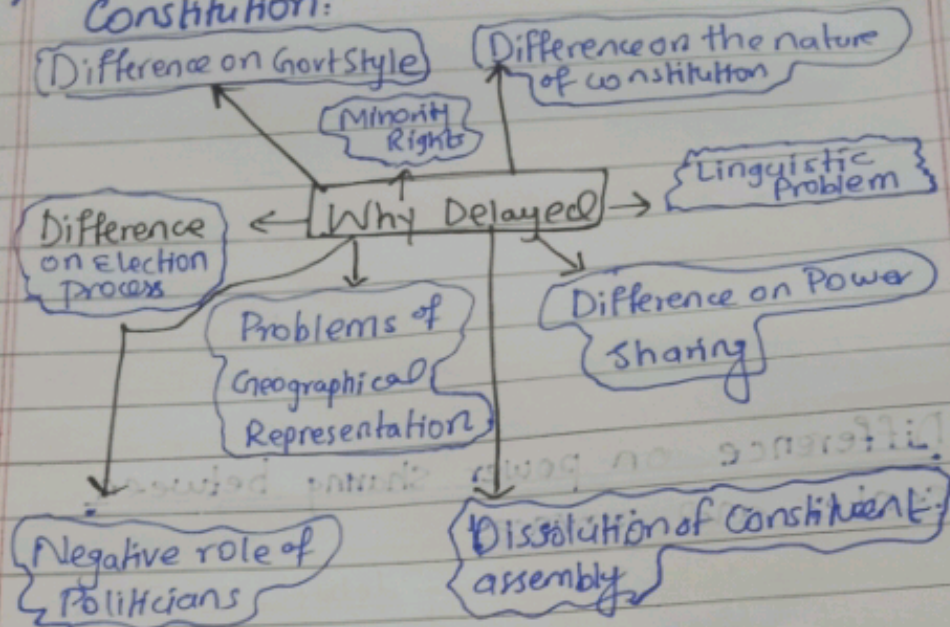 Constitution:
Difference on Govt Style
Difference on the nature
of constitution
Minority
Rights
Linguistic
Problem
Why Delayed
Difference
on Election
Process
Difference on Power
sharing
Problems of
Geographical
Representation
Negative role of
Politicians
Dissolution of Constituent
assembly